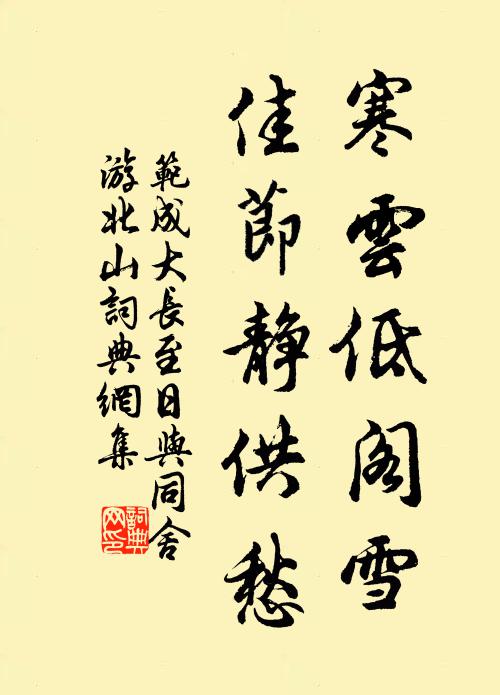 寒雲低阁雪
佳節静供愁
範成大長至日與同舍
游北山詞典網集
詞典网印